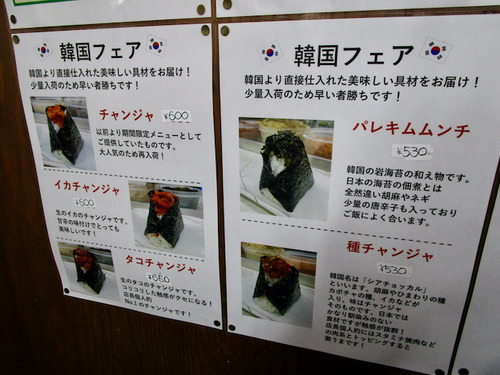 韓国フェア
韓国より直接仕入れた美味しい具材をお届け！
少量入荷のため早い者勝ちです！
チャンジャ
¥600
以前より期間限定メニューとして
ご提供していたものです。
大人気のため再入荷！
イカチャンジャ
¥600
生のイカのチャンジャです。
甘辛の味付けでとっても
美味しいです！
タコチャンジャ
¥650
生のタコのチャンジャです。
コリコリした触感がクセになる！
店長個人的
No.1のチャンジャです！
韓国フェア
韓国より直接仕入れた美味しい具材をお届け！
少量入荷のため早い者勝ちです！
パレキムムンチ
¥530
韓国の岩海苔の和え物です。
日本の海苔の佃煮とは
全然違い胡麻やネギ
少量の唐辛子も入っており
ご飯によく合います。
種チャンジャ
¥530
韓国名は「シアチョッカル」
といいます。胡麻やひまわりの種
カボチャの種、イカなどが
入り、味はチャンジャ
そのものです。日本では
かなり馴染みのない
食材ですが触感が抜群！
店長個人的にはスタミナ焼肉など
の肉系とトッピングすると
激うまです！